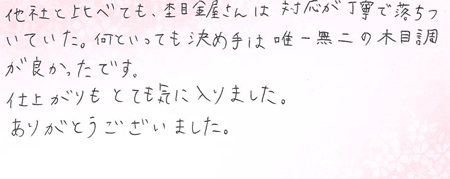 他社と比べても、杢目金屋さんは対応が丁寧で落ちつ
いていた。何といっても決め手は唯一無二の木目調
が良かったです。
仕上がりもとても気に入りました。
ありがとうございました。